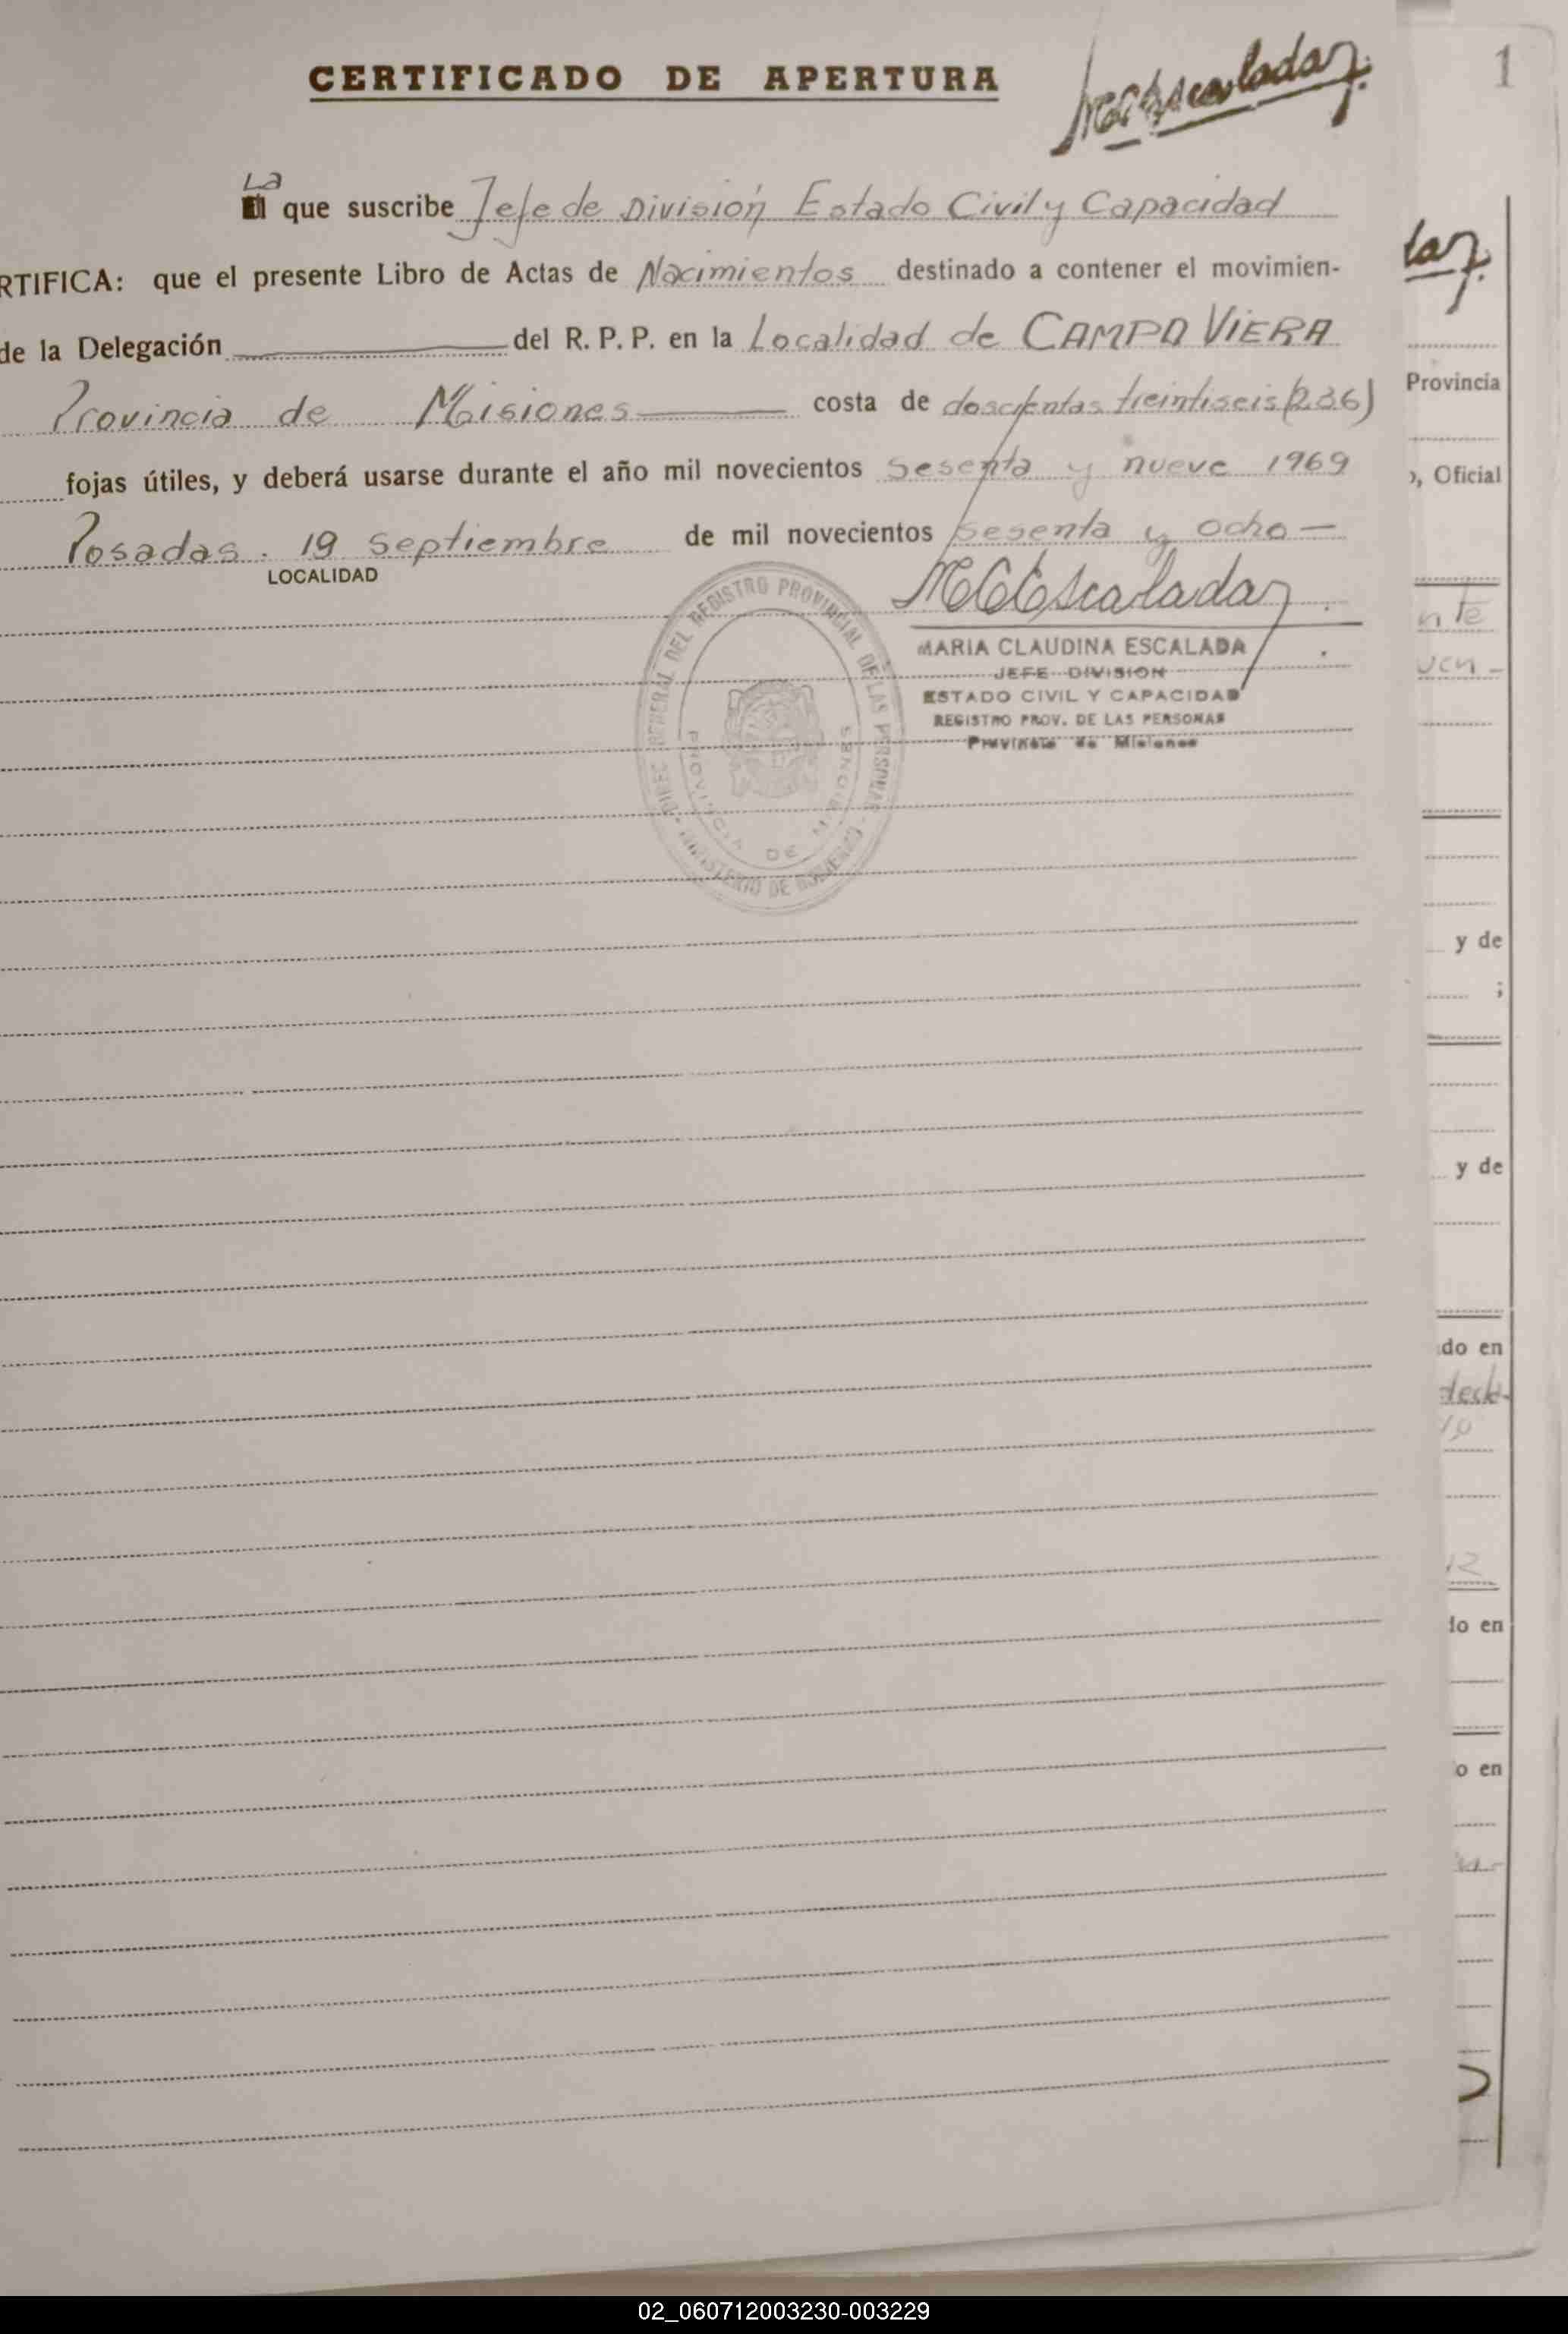 CERTIFICADO DE APERTURA
1
La
El que suscribe Jefe de División Estado Civil y Capacidad
RTIFICA: que el presente Libro de Actas de Nacimientos destinado a contener el movimien-
de la Delegación del R. P. P. en la Localidad de CAMPO VIERA
Provincia de Misiones costa de doscientas treintiseis (236)
fojas útiles, y deberá usarse durante el año mil novecientos Sesenta y nueve 1969
Posadas. 19 Septiembre de mil novecientos sesenta y ocho —
LOCALIDAD
MCEscalada
MARIA CLAUDINA ESCALADA
JEFE DIVISION
ESTADO CIVIL Y CAPACIDAD
REGISTRO PROV. DE LAS PERSONAS
Provincia de Misiones
DIREC. GENERAL DEL REGISTRO PROVINCIAL DE LAS PERSONAS
MINISTERIO DE GOBIERNO
PROVINCIA DE MISIONES
Provincia
o, Oficial
nte
y de
;
y de
do en
do en
o en
02_060712003230-003229